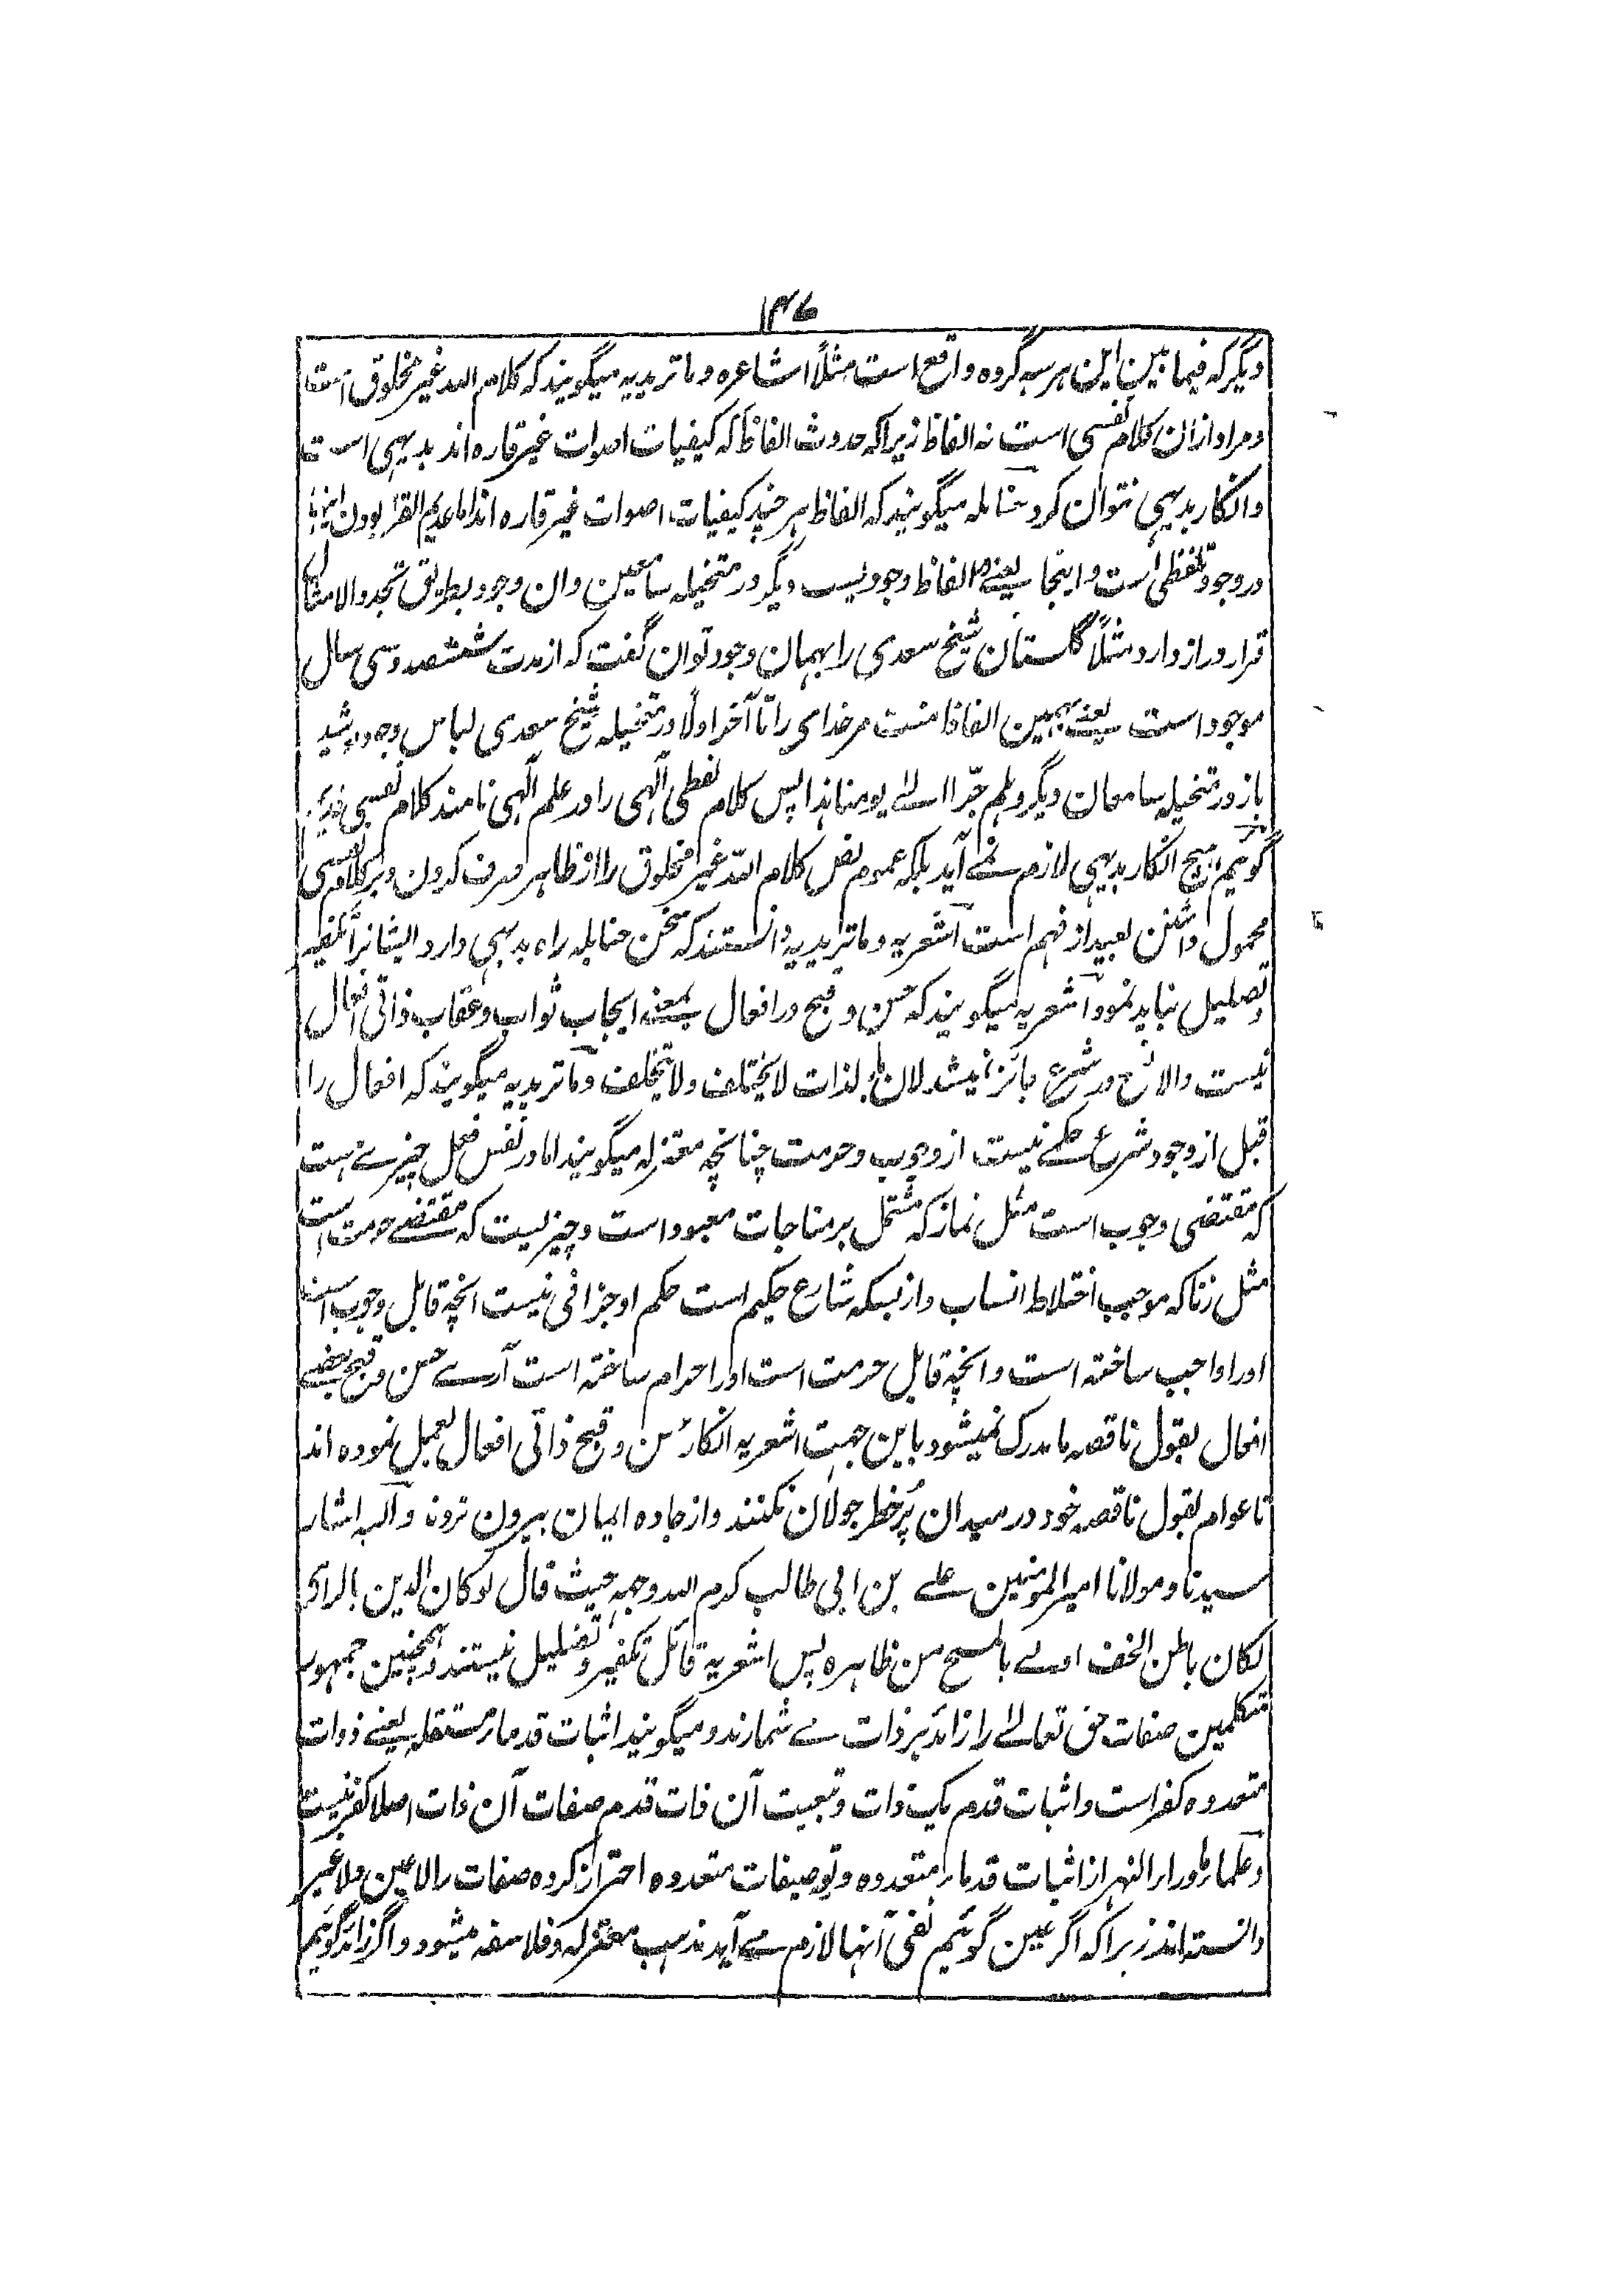 ۱۴۶
دیگر که فیما بین این هر سه گروه واقع است مثلاً اشاعره و ماتریدیه میگویند که کلام الله غیر مخلوق است
و مراد ازان کلام نفسی است نه الفاظ زیرا که حدوث الفاظ که کیفیات اصوات غیر قاره اند بدیهی است
و انکار بدیهی نتوان کرد حنابله میگویند که الفاظ هر چند کیفیات اصوات غیر قاره اند اما عدیم القرار بودن اینها
در وجود تلفظی است و اینجا یعنے الفاظ وجودیست دیگر در متخیله سامعین وان وجود بطریق تجدد الامثال
قرار دراز دارد مثلاً گلستان شیخ سعدی را بهمان وجود توان گفت که از مدت ششصد و سی سال
موجود است یعنے همین الفاظ منت مر خدای را تا آخر اولاً در متخیله شیخ سعدی لباس وجود پوشید
باز در متخیله سامعان دیگر وهلم جرّا الے یومنا هذا پس کلام لفظی الٓهی را در علم الٓهی نامند کلام نفسی
گوئیم هیچ انکار بدیهی لازم نمے آید بلکه عموم نص کلام الله غیر مخلوق را از ظاهر صرف کردن و بر کلام نفسی
محمول داشتن بعید از فهم است اشعریه و ماتریدیه دانستند که سخن حنابله راه بدیهی دارد ایشانرا تکفیر
و تضلیل نباید نمود و اشعریه میگویند که حسن و قبح در افعال بمعنے ایجاب ثواب و عقاب ذاتی افعال
نیست والا نسخ در شرع جائز نمیشد لان ما بالذات لا یختلف ولا یتخلف و ماتریدیه میگویند که افعال را
قبل از وجود شرع حکمے نیست از وجوب و حرمت چنانچه معتزله میگویند اما در نفس فعل چیزے هست
که مقتضی وجوب است مثل نماز که مشتمل بر مناجات معبود است و چیزیست که مقتضے حرمت است
مثل زنا که موجب اختلاط انساب و از بسکه شارع حکیم است حکم او جزافی نیست انچه قابل وجوب است
اورا واجب ساخته است و انچه قابل حرمت است اورا حرام ساخته است آرے حسن و قبح بعضے
افعال بعقول ناقصه ما مدرک نمیشود باین جهت اشعریه انکار حسن و قبح ذاتی افعال بعمل نموده اند
تا عوام بعقول ناقصه خود در میدان پُر خطر جولان نکنند و از جاده ایمان بیرون نروند و الیه اشار
سیدنا و مولانا امیر المؤمنین علے بن ابی طالب کرم الله وجهه حیث قال لو کان الدین بالرای
لکان باطن الخف اولے بالمسح من ظاهره پس اشعریه قائل تکفیر و تضلیل نیستند و همچنین جمهور
متکلمین صفات حق تعالے را زائد بر ذات مے شمارند و میگویند اثبات قدماء مستقله یعنے ذوات
متعدده کفر است و اثبات قدم یک ذات و تبعیت آن ذات قدم صفات آن ذات اصلا کفر نیست
و علماء ماوراء النهر از اثبات قدماء متعدده و توصیفات متعدده احتراز کرده صفات را لا عین ولا غیر
دانسته اند زیرا که اگر عین گوئیم نفی آنها لازم مے آید مذهب معتزله و فلاسفه میشود و اگر زائد گوئیم